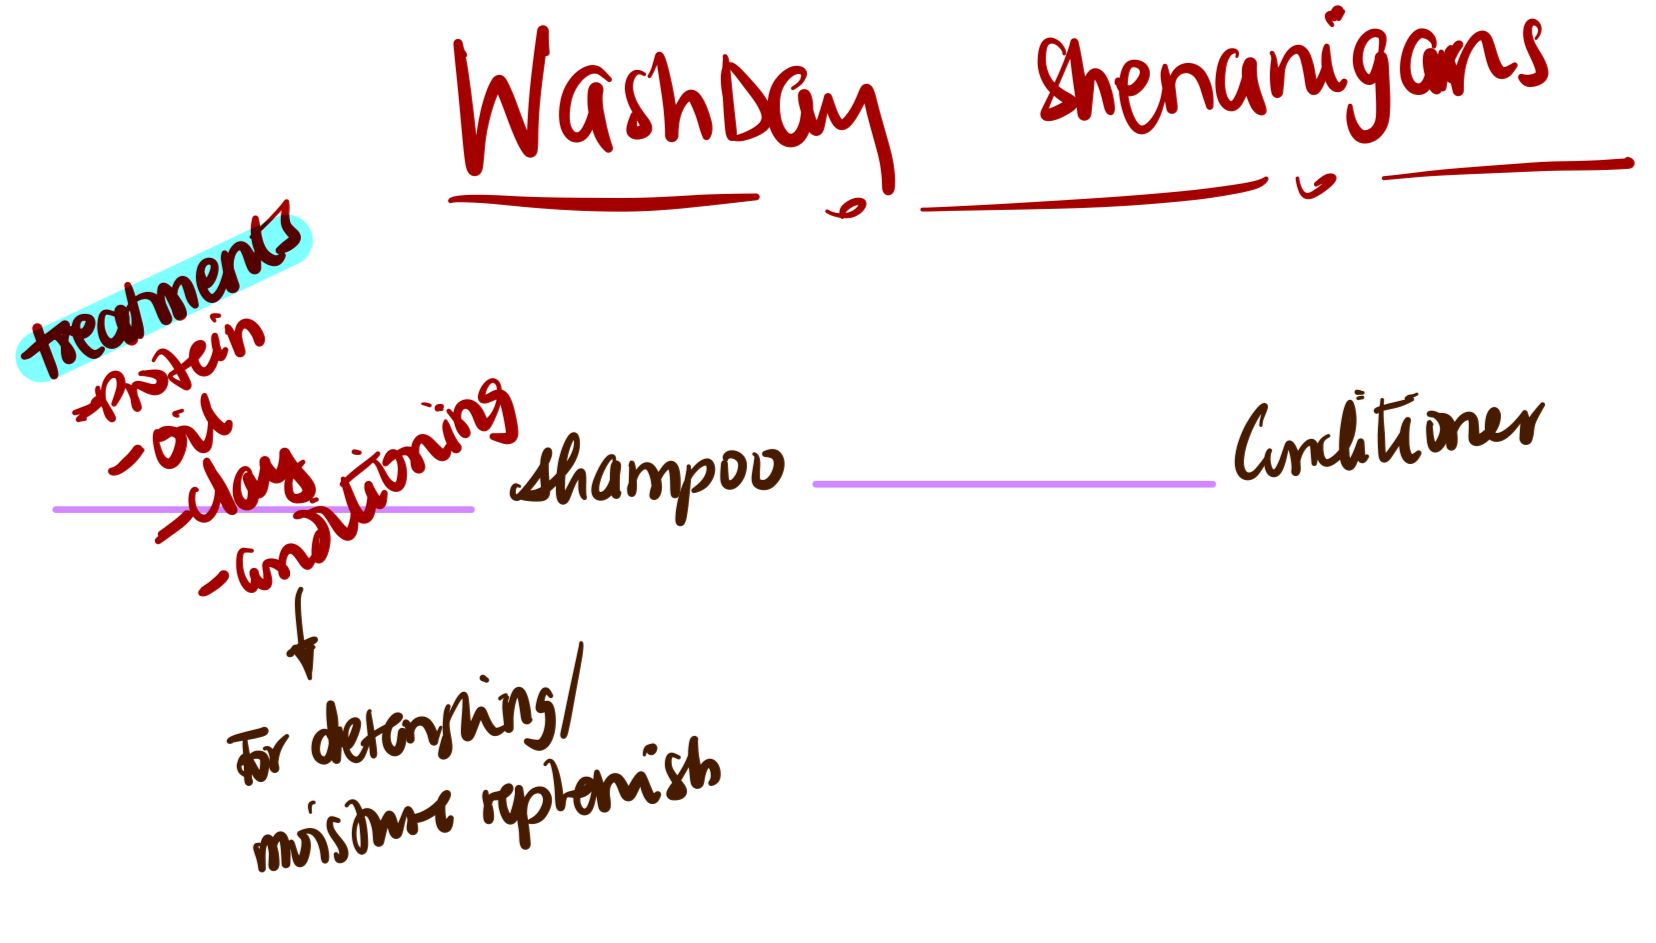 WashDay Shenanigans
treatments
-Protein
-oil
-clay
-conditioning
shampoo
Conditioner
For detangling/
moisture replenish